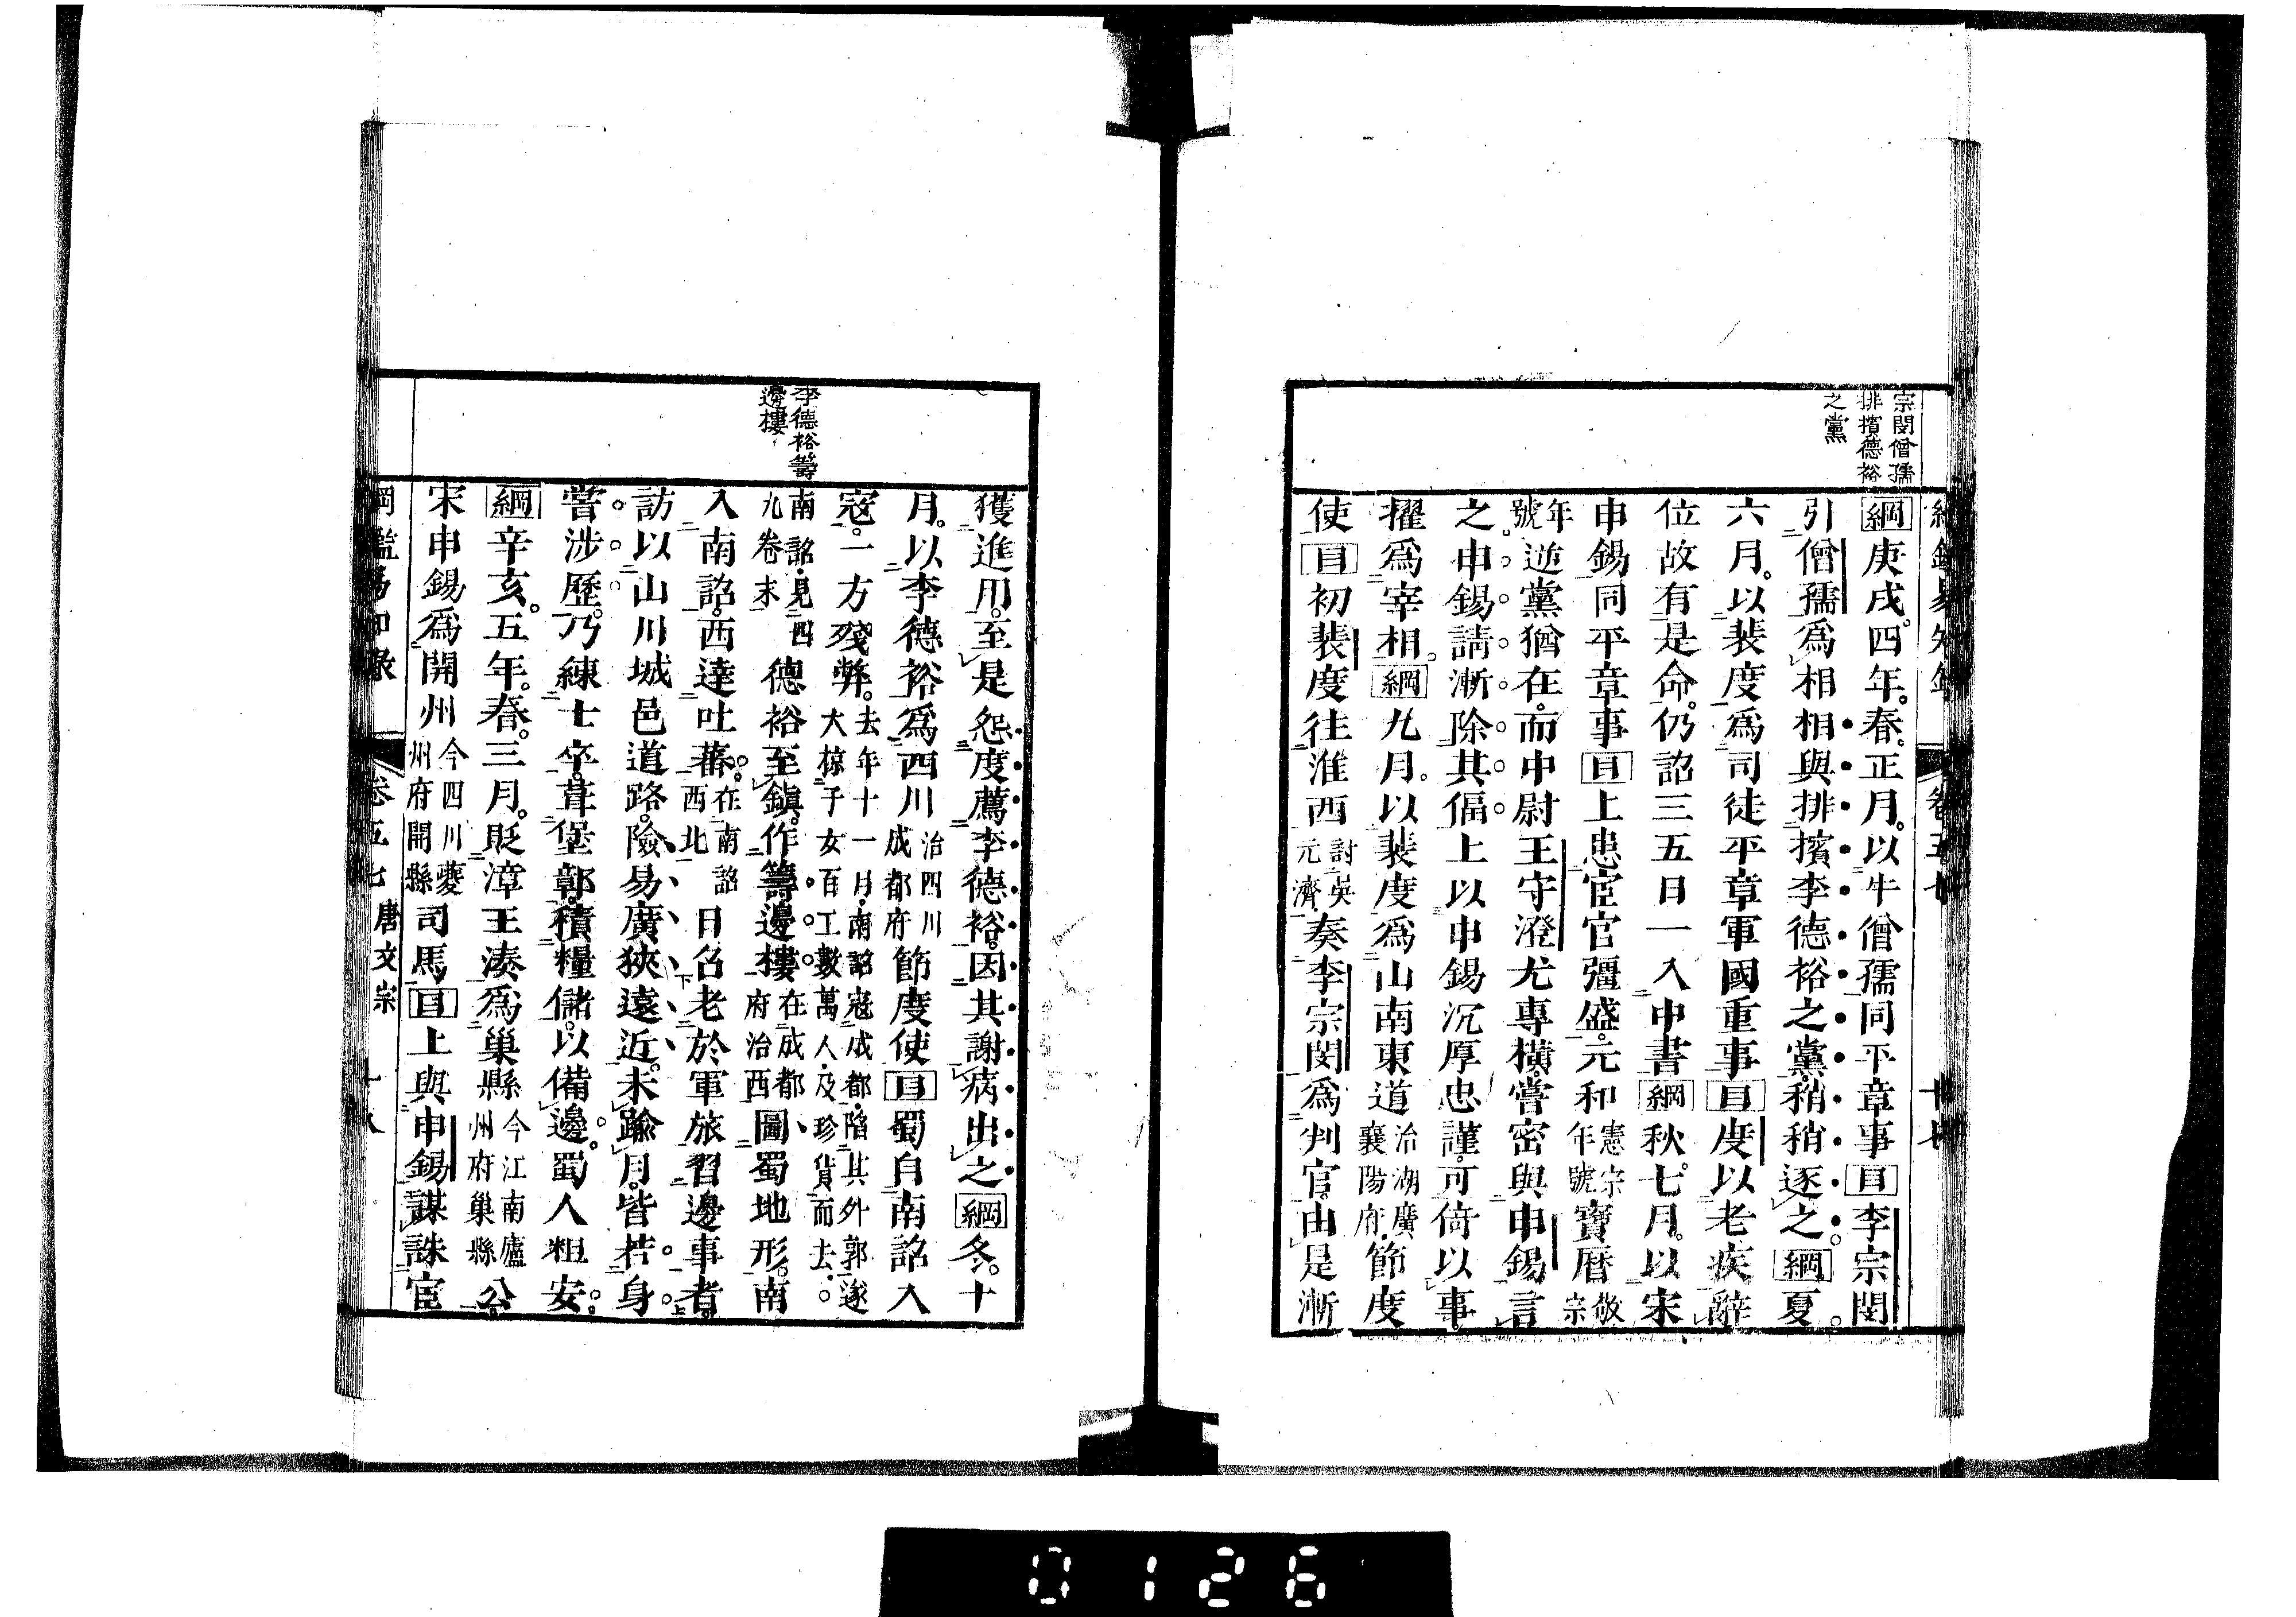 宗閔僧孺
排擯德裕
之黨
綱鑑易知錄 卷五七 十七
綱庚戌。四年。春。正月。以牛僧孺同平章事目李宗閔
引僧孺爲相相與排擯李德裕之黨。稍稍逐之。綱夏。
六月。以裴度爲司徒平章軍國重事目度以老疾辭
位故有是命。仍詔三五日一入中書綱秋。七月。以宋
申錫同平章事目上患宦官彊盛。元和憲宗年號寶曆敬宗
年號逆黨猶在。而中尉王守澄尤專橫。嘗密與申錫言
之。申錫請漸除其偪上以申錫沉厚忠謹。可倚以事。
擢爲宰相。綱九月。以裴度爲山南東道治湖廣襄陽府節度
使目初裴度往淮西討吳元濟奏李宗閔爲判官。由是漸
獲進用。至是怨度薦李德裕。因其謝病出之綱冬。十
月。以李德裕爲西川治四川成都府節度使目蜀自南詔入
寇。一方殘弊。去年十一月。南詔寇成都。陷其外郭。遂大掠子女百工數萬人。及珍貨而去。
南詔。見四九卷末德裕至鎭。作籌邊樓在成都府治西圖蜀地形。南
入南詔。西達吐蕃。在南詔西北日召老於軍旅習邊事者。
訪以山川城邑道路。險易廣狹遠近。未踰月。皆若身
嘗涉歷。乃練士卒。葺堡鄣。積糧儲。以備邊。蜀人粗安。
綱辛亥。五年。春。三月。貶漳王湊爲巢縣今江南廬州府巢縣公。
宋申錫爲開州今四川夔州府開縣司馬目上與申錫謀誅宦
李德裕籌
邊樓
綱鑑易知錄 卷五七 唐文宗 十八
0126